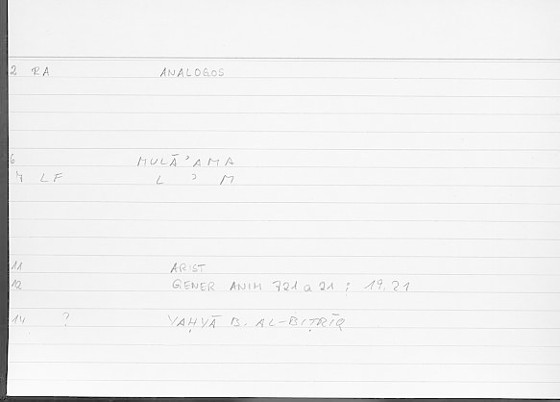 2 RA ANALOGOS
6 MULĀʾAMA
7 LF L ʾ M
11 ARIST
12 GENER ANIM 721 a 21 ; 19.21
14 ? YAḤYĀ B. AL-BIṬRĪQ